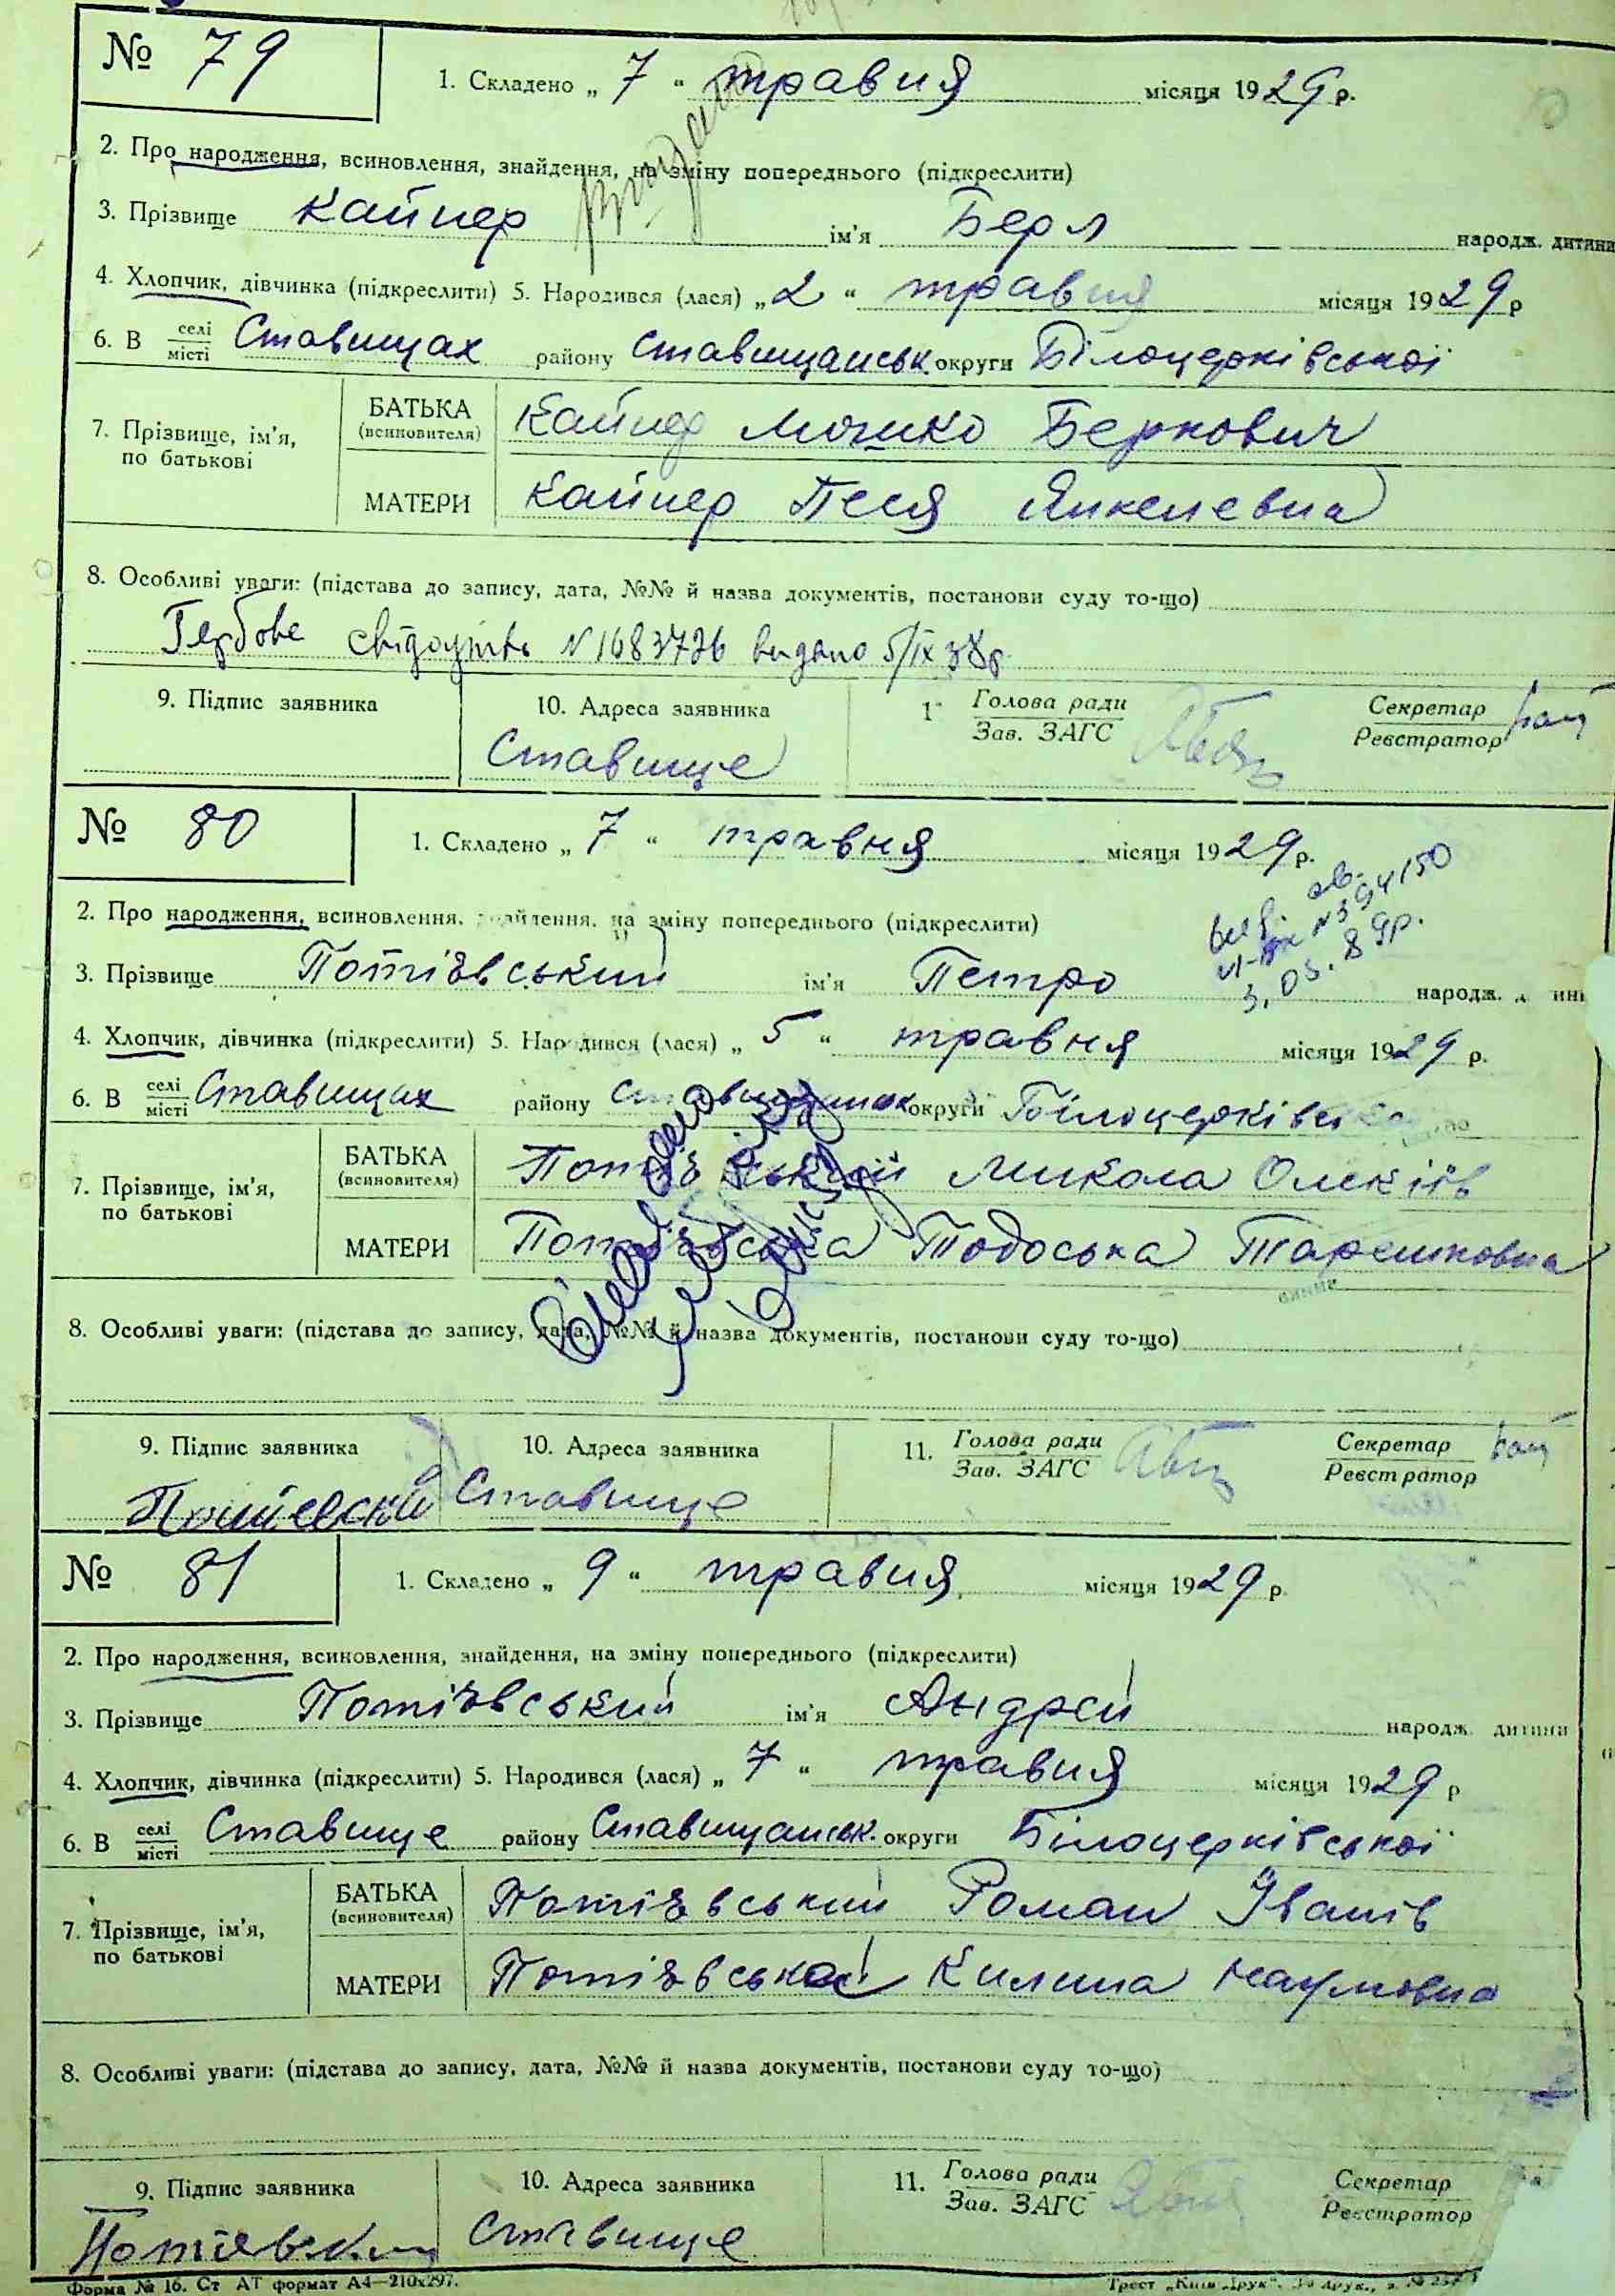 № 79
1. Складено „ 7 “ травня місяця 1929 р.
2. Про народження, всиновлення, знайдення, на зміну попереднього (підкреслити)
3. Прізвище Кайнер ім'я Берл народж. дитини
4. Хлопчик, дівчинка (підкреслити) 5. Народився (лася) „ 2 “ травня місяця 1929 р
6. В селі місті Ставищах району Ставищанськ округи Білоцерківської
7. Прізвище, ім'я, по батькові
БАТЬКА (всиновителя) Кайнер Мошко Беркович
МАТЕРИ Кайнер Песя Янкелевна
8. Особливі уваги: (підстава до запису, дата, №№ й назва документів, постанови суду то-що)
Гербове свідоцтво N 1683726 видано 5/IX 38р.
9. Підпис заявника
10. Адреса заявника
Ставище
Голова ради
Зав. ЗАГС
Секретар
Реєстратор
№ 80
1. Складено „ 7 “ травня місяця 1929 р.
2. Про народження, всиновлення, знайдення, на зміну попереднього (підкреслити)
N 394150
3.03.89р.
3. Прізвище Потієвський ім'я Петро народж. дитини
4. Хлопчик, дівчинка (підкреслити) 5. Народився (лася) „ 5 “ травня місяця 1929 р.
6. В селі місті Ставищах району округи Білоцерківської
7. Прізвище, ім'я, по батькові
БАТЬКА (всиновителя) Потієвський Микола Олексіїв
МАТЕРИ Потієвська Тодоська
8. Особливі уваги: (підстава до запису, дата, №№ й назва документів, постанови суду то-що)
9. Підпис заявника
10. Адреса заявника
Ставище
11. Голова ради
Зав. ЗАГС
Секретар
Реєстратор
№ 81
1. Складено „ 9 “ травня місяця 1929 р
2. Про народження, всиновлення, знайдення, на зміну попереднього (підкреслити)
3. Прізвище Потієвський ім'я Андрей народж. дитини
4. Хлопчик, дівчинка (підкреслити) 5. Народився (лася) „ 7 “ травня місяця 1929 р
6. В селі місті Ставище району Ставищанськ. округи Білоцерківської
7. Прізвище, ім'я, по батькові
БАТЬКА (всиновителя) Потієвський Роман Іванів
МАТЕРИ Потієвська Килина Наумовна
8. Особливі уваги: (підстава до запису, дата, №№ й назва документів, постанови суду то-що)
9. Підпис заявника
10. Адреса заявника
Ставище
11. Голова ради
Зав. ЗАГС
Секретар
Реєстратор
Форма № 16. Ст АТ формат А4—210х297.
Трест „Київ-Друк“.